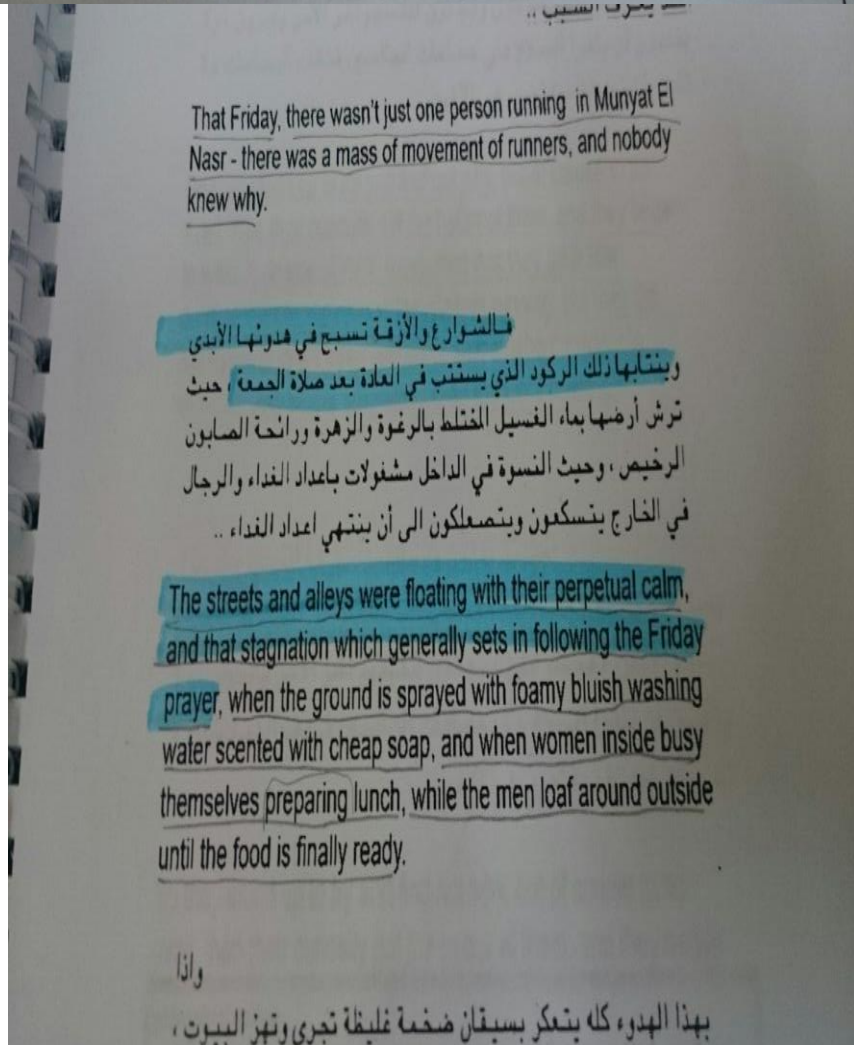 السبب ..
That Friday, there wasn't just one person running in Munyat El
Nasr - there was a mass of movement of runners, and nobody
knew why.
فالشوارع والأزقة تسبح في هدوئها الأبدي
وينتابها ذلك الركود الذي يستتب في العادة بعد صلاة الجمعة ، حيث
ترش أرضها بماء الغسيل المختلط بالرغوة والزهرة ورائحة الصابون
الرخيص ، وحيث النسوة في الداخل مشغولات باعداد الغداء والرجال
في الخارج يتسكعون ويتصعلكون الى أن ينتهي اعداد الغداء ..
The streets and alleys were floating with their perpetual calm,
and that stagnation which generally sets in following the Friday
prayer, when the ground is sprayed with foamy bluish washing
water scented with cheap soap, and when women inside busy
themselves preparing lunch, while the men loaf around outside
until the food is finally ready.
واذا
بهذا الهدوء كله يتعكر بسيقان ضخمة غليظة تجرى وتهز البيوت ،